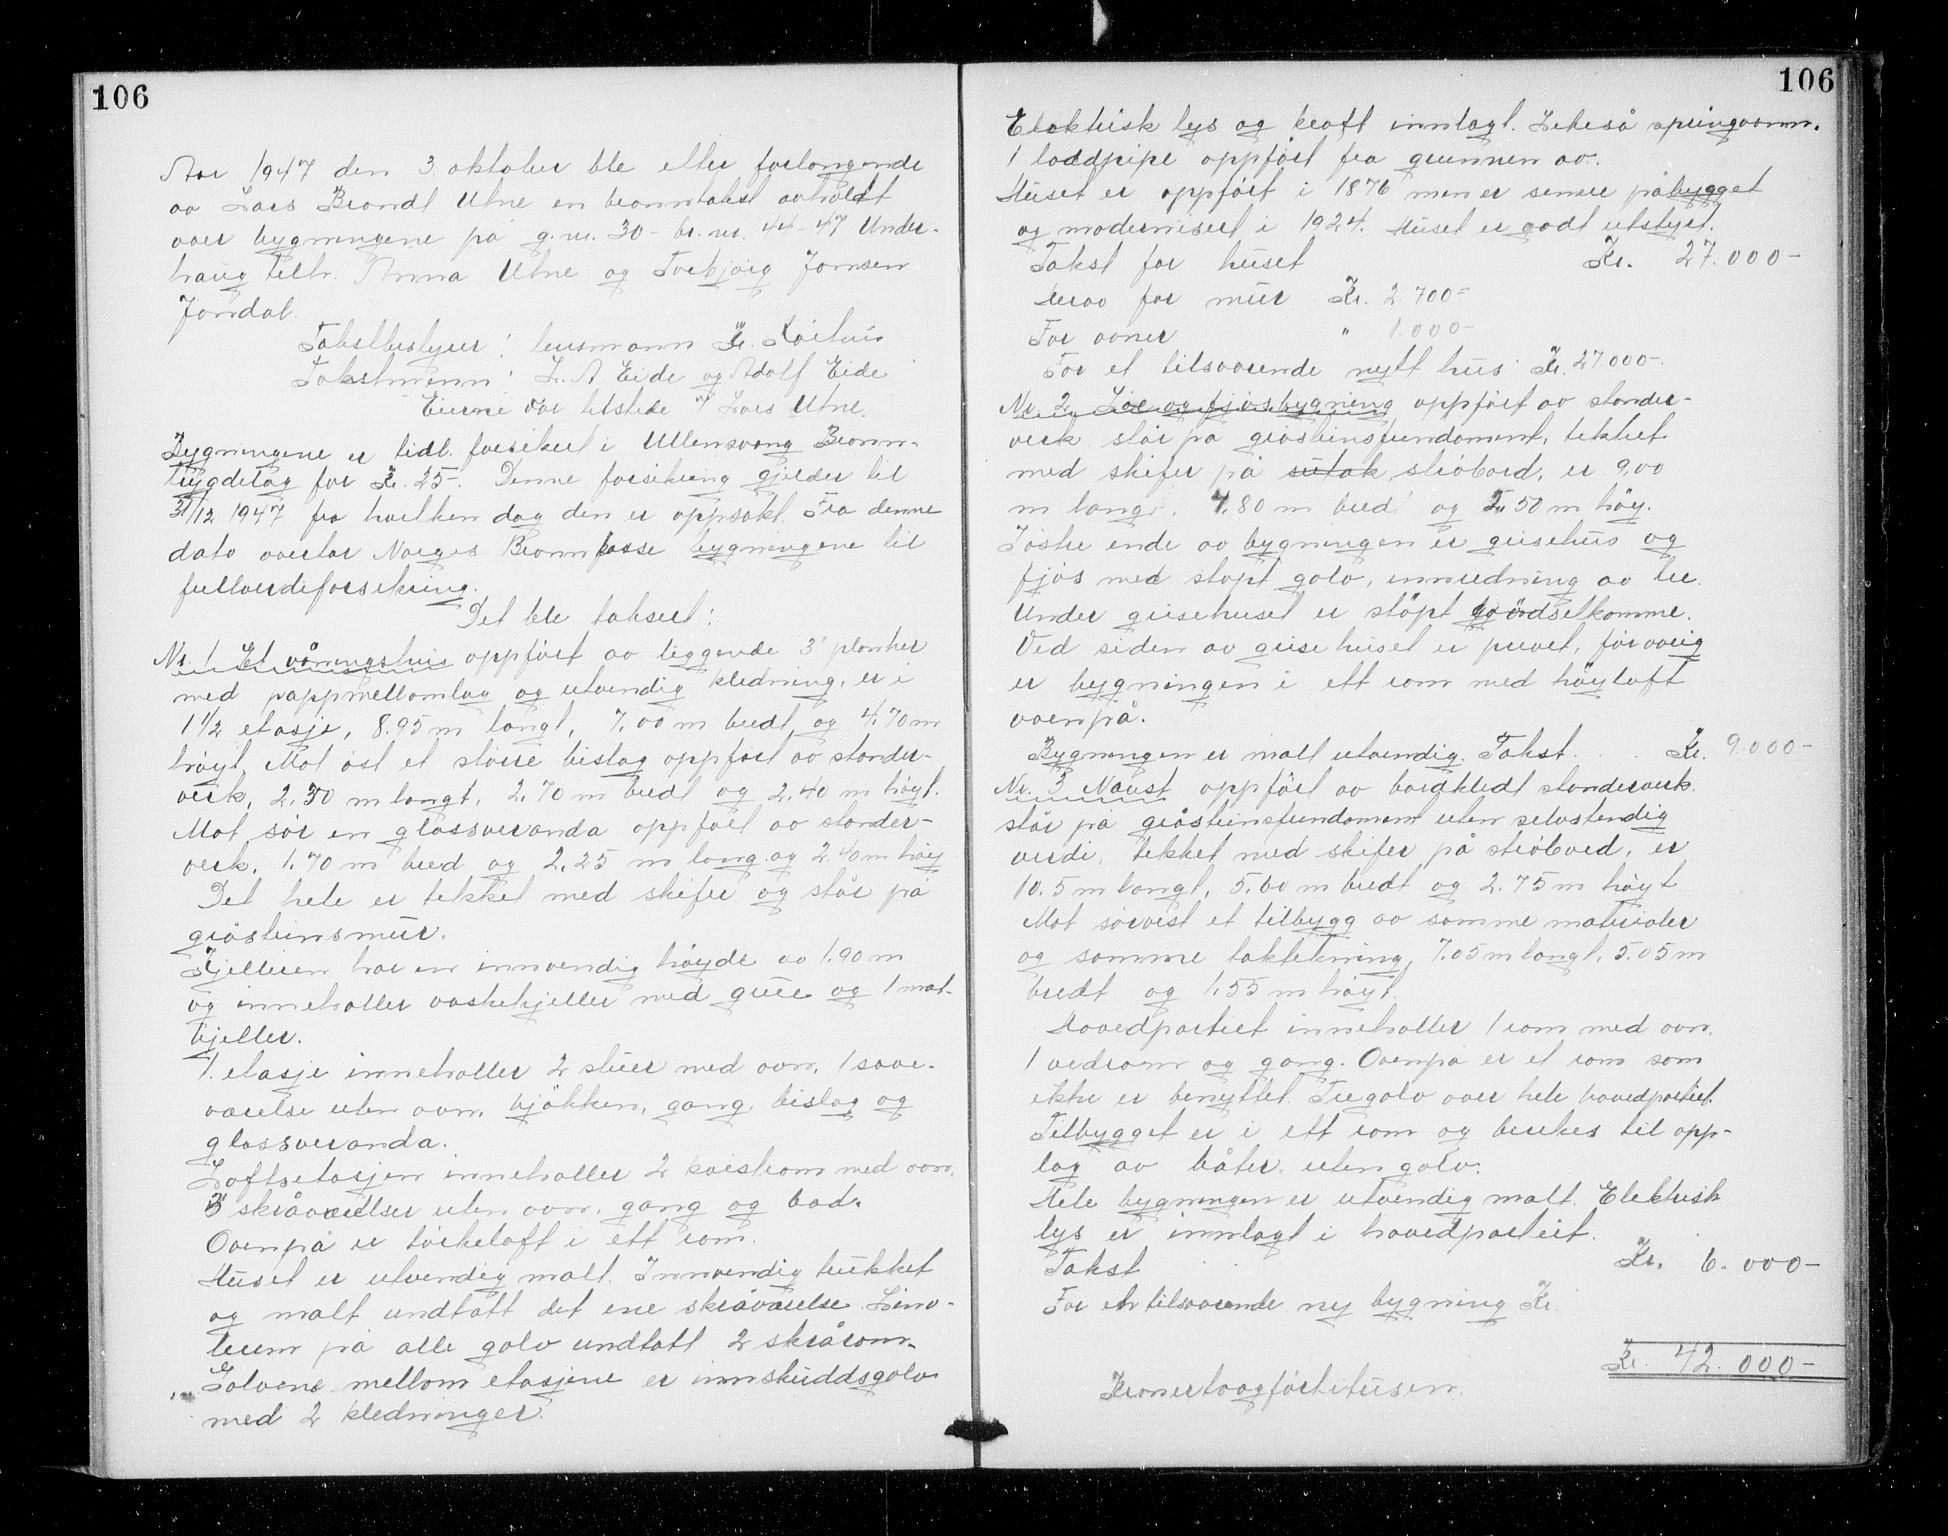 106
Aar 1947 den 3. oktober ble etter forlangende
av Lars Brandt Utne en branntakst avholdt
over bygningene på g.nr. 30 - br.nr. 44 - 47 Under-
haug tilh. Anna Utne og Torbjørg Jomsen
Jondal.
Takstbestyrer : lensmann Kr.
Takstmenn : L. A. Eide og Adolf Eide
Eierne var tilstede v/ Lars Utne.
Bygningene er tidl. forsikret i Ullensvang Brann-
trygdelag for Kr. 25-. Denne forsikring gjelder til
31/12 1947 fra hvilken dag den er oppsakt. Fra denne
dato overtar Norges Brannkasse bygningene til
fullverdiforsikring.
Det ble taksert :
Nr. 1 Et våningshus oppført av liggende 3" planker
med pappmellomlag og utvendig kledning, er i
1 1/2 etasje, 8.95 m langt, 7.00 m bredt og 4.70 m
høyt. Mot øst et större bislag oppfört av stander-
verk, 2.30 m langt, 2.70 m bredt og 2.40 m høgt.
Mot sør en glassveranda oppfört av stander-
verk, 1.70 m bred og 2.25 m lang og 2.40 m höy
Det hele er tekket med skifer og står på
gråsteinsmur.
Kjelleren har en innvendig høyde av 1.90 m
og inneholler vaskekjeller med grue og 1 mat-
kjeller.
1. etasje inneholler 2 stuer med ovn, 1 sove-
værelse uten ovn, kjökken, gang, bislag og
glassveranda.
Loftsetasjen inneholler 2 kvistrom med ovn,
3 skråværelser uten ovn, gang og bad.
Ovenpå er törkeloft i ett rom.
Huset er utvendig malt. Innvendig trukket
og malt undtatt det ene skråværelse. Lino-
leum på alle golv undtatt 2 skrårom.
Golvene mellom etasjene er innskuddsgolv
med 2 kledninger.
106
Elektrisk lys og kraft innlagt. Likeså springvann.
1 loddpipe oppfört fra grunnen av.
Huset er oppfört i 1876 men er senere påbygget
og modernisert i 1924. Huset er godt utstyrt.
Takst for huset Kr. 27.000-
herav for mur Kr. 2.700-
For ovner " 1.000-
For et tilsvarende nytt hus Kr. 27.000-.
Nr. 2 Löe og fjösbygning oppfört av stander-
verk står på gråsteinsfundament, tekket
med skifer på sutak, ströbord, er 9.00
m lang, 4.80 m bred og 2.50 m höy.
I östre ende av bygningen er grisehus og
fjös med stöpt golv, innredning av tre.
Under grisehuset er stöpt gjödselkomme.
Ved siden av grisehuset er privet, for övrig
er bygningen i ett rom med höyloft
ovenpå.
Bygningen er malt utvendig. Takst . . Kr. 9.000-
Nr. 3 Naust oppfört av bordkledt standerverk.
står på gråsteinsfundament uten selvstendig
verdi, tekket med skifer på ströbord, er
10.5 m langt, 5.60 m bredt og 2.75 m höyt.
Mot sörvest et tilbygg av samme materialer
og samme taktekning, 7.05 m langt, 5.05 m
bredt og 1.55 m höyt.
Hovedpartiet inneholler 1 rom med ovn,
1 vedrom og gang. Ovenpå er et rom som
ikke er benyttet. Tregolv over hele hovedpartiet.
Tilbygget er i ett rom og brukes til opp-
lag av båter, uten golv.
Hele bygningen er utvendig malt. Elektrisk
lys er innlagt i hovedpartiet.
Takst Kr. 6.000-
For en tilsvarende ny bygning Kr.
Kr. 42.000-
Kronertoogförtitusen.